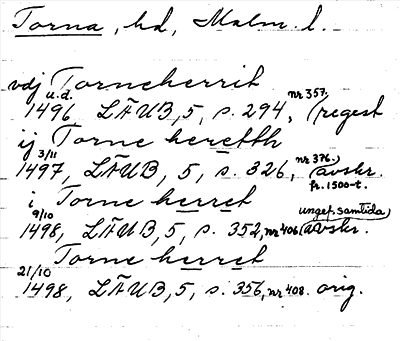 Torna, hd, Malm. l.
vdj Torneherrit
1496 u.d. LÄUB, 5, s. 294, nr 357. (regest
ij Torne heretth
3/11 1497, LÄUB, 5, s. 326, nr 376. (avskr. fr. 1500-t.
i Torne herret
9/10 1498, LÄUB, 5, s. 352, nr 406 (ungef. samtida) avskr.
Torne herret
21/10 1498, LÄUB, 5, s. 356, nr 408. orig.